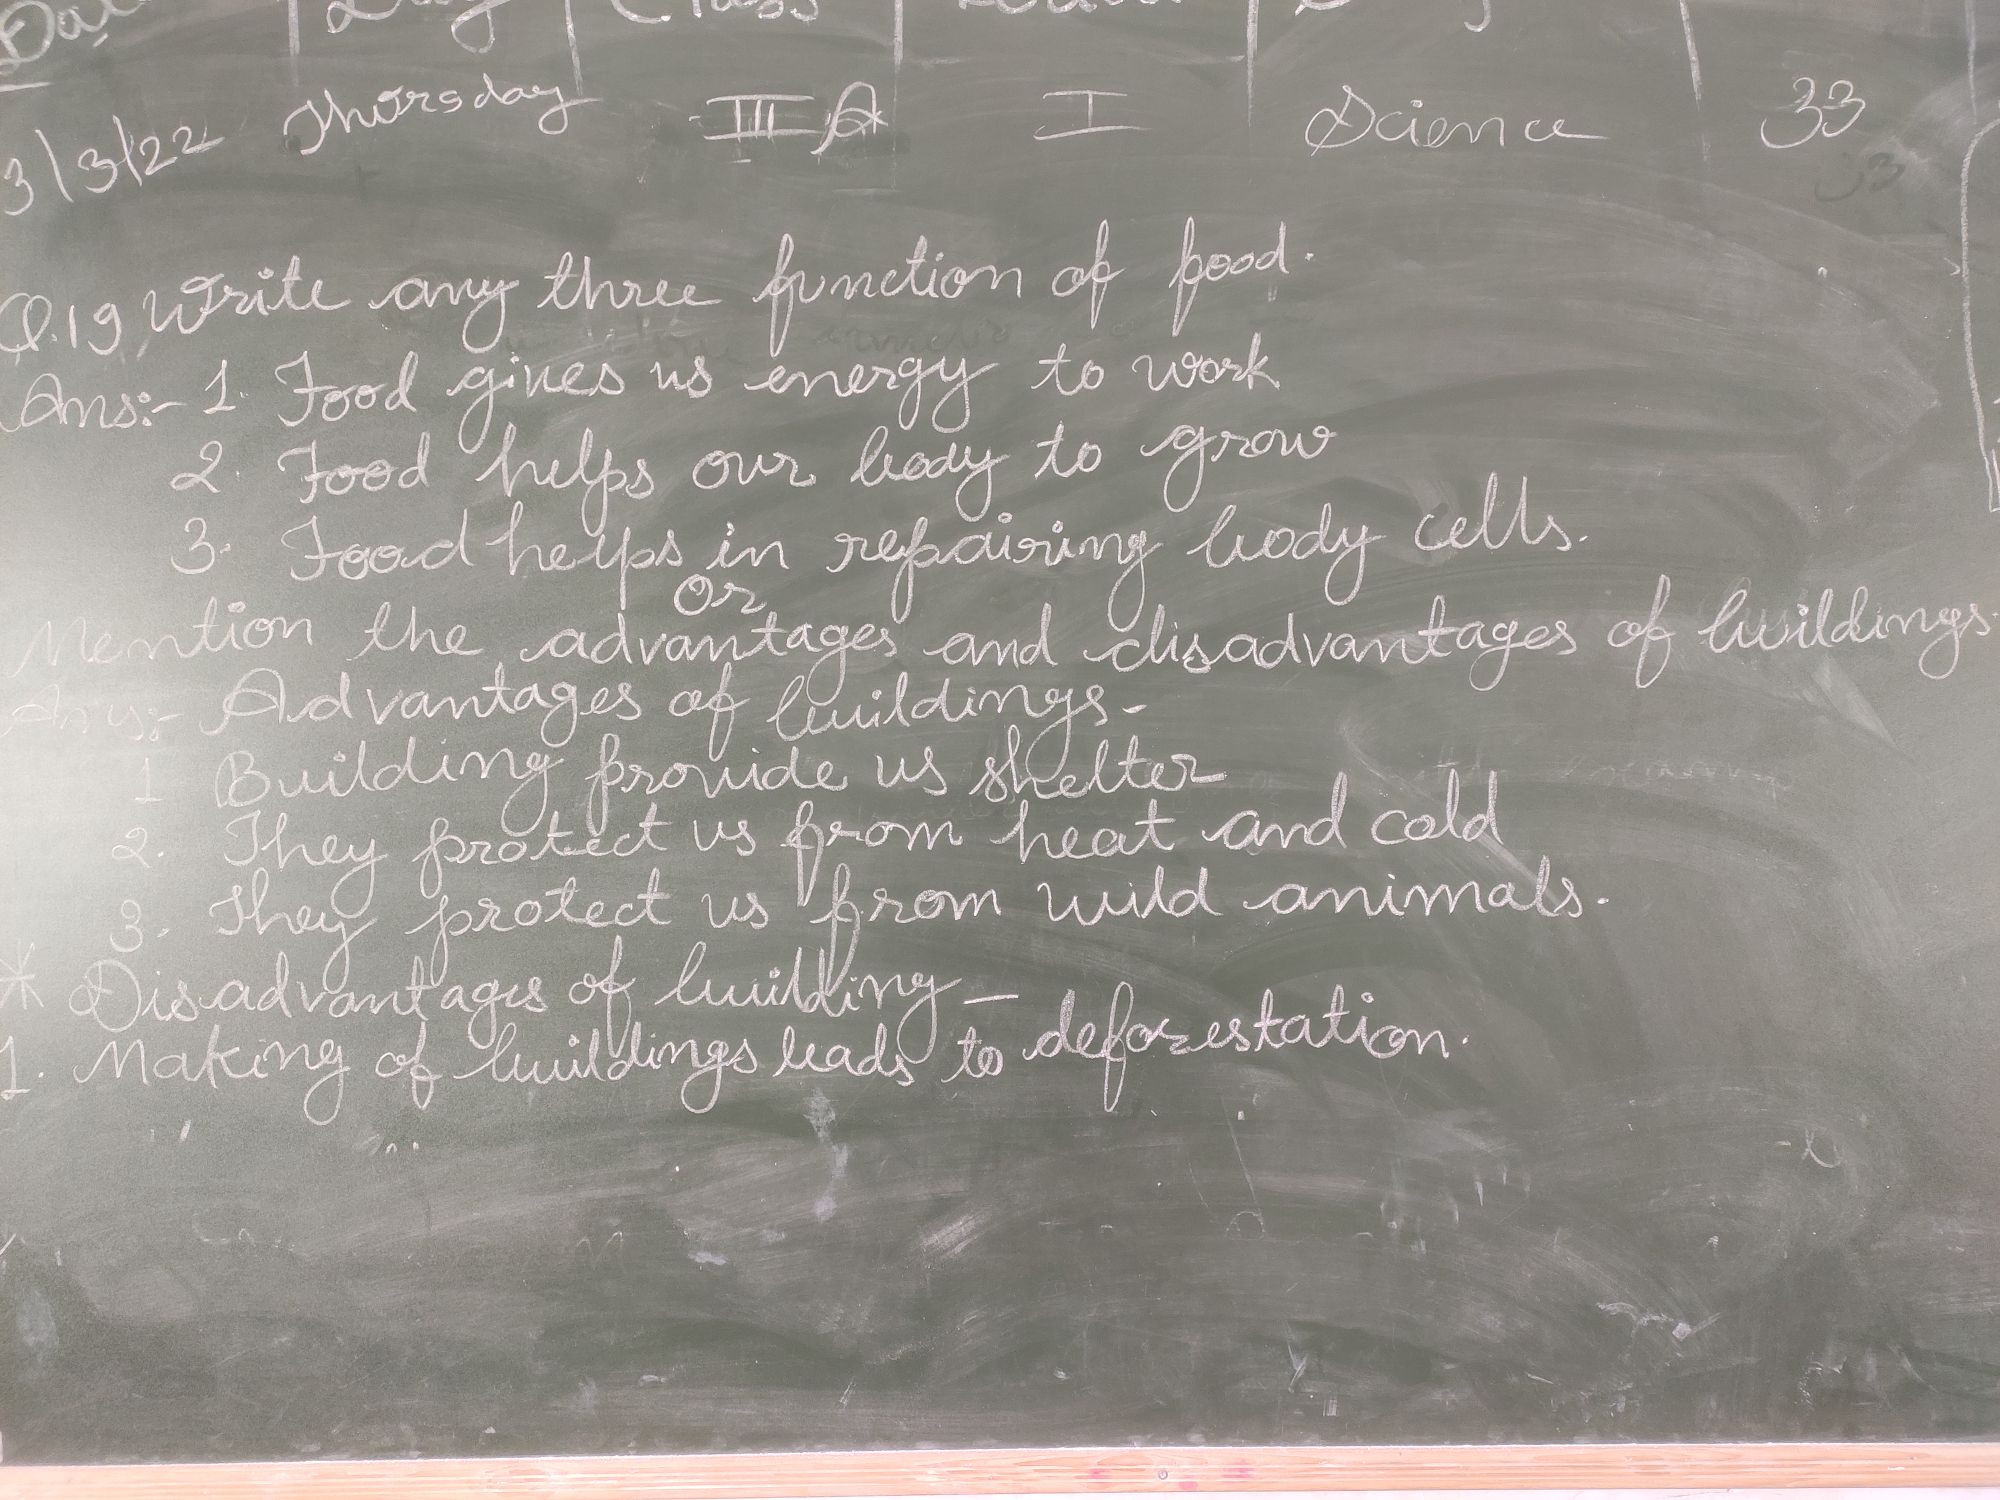 Day Class
3/3/22 Thursday III A I Science 33
Q.19 Write any three function of food.
Ans:- 1. Food gives us energy to work
2. Food helps our body to grow
3. Food helps in repairing body cells.
Or
Mention the advantages and disadvantages of buildings.
Ans:- Advantages of buildings-
1 Building provide us shelter
2. They protect us from heat and cold
3. They protect us from wild animals.
* Disadvantages of building -
1. Making of buildings leads to deforestation.